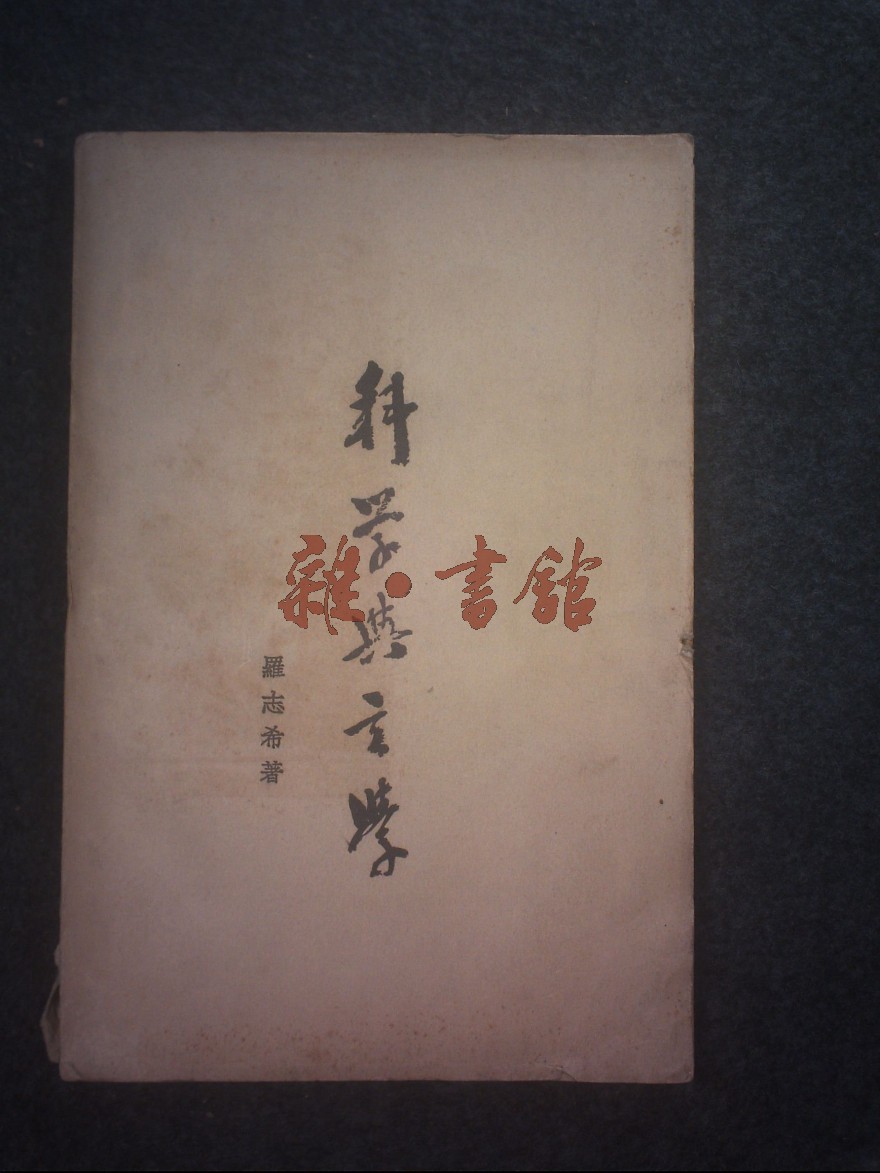 科学與玄學
羅志希著
雜·書館